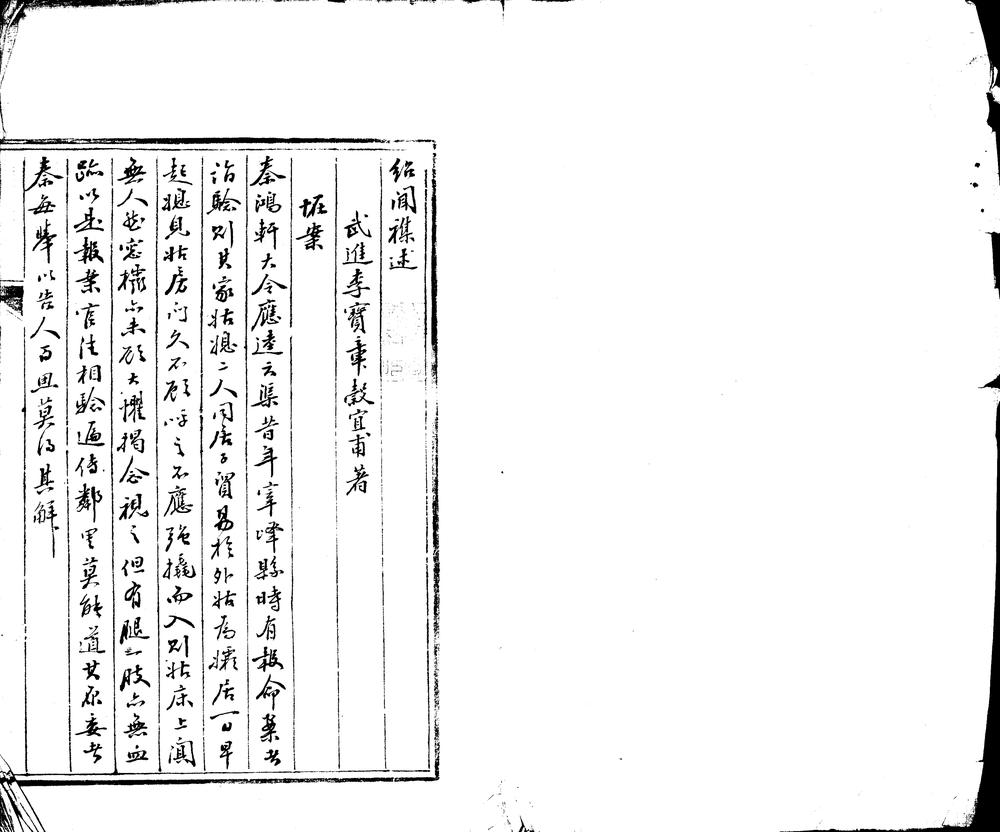 紹聞襍述
武進李寶章穀宜甫著
奇案
秦鴻軒大令應逵云渠昔年宰嶧縣時有報命案者
詣驗則其家姑媳二人同居子貿易於外姑為孀居一日早
起媳見姑房門久不啟呼之不應强撬而入則姑床上闃
無人然窓櫺亦未啟大懼揭衾視之但有腿一肢亦無血
跡以是報案官往相驗遍傳鄰里莫能道其原委者
秦每舉以告人百思莫得其解